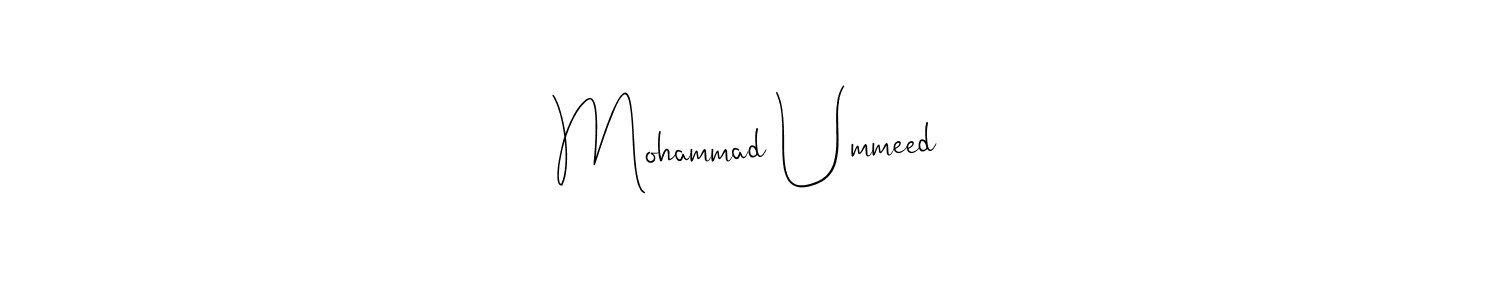 Mohammad Ummeed